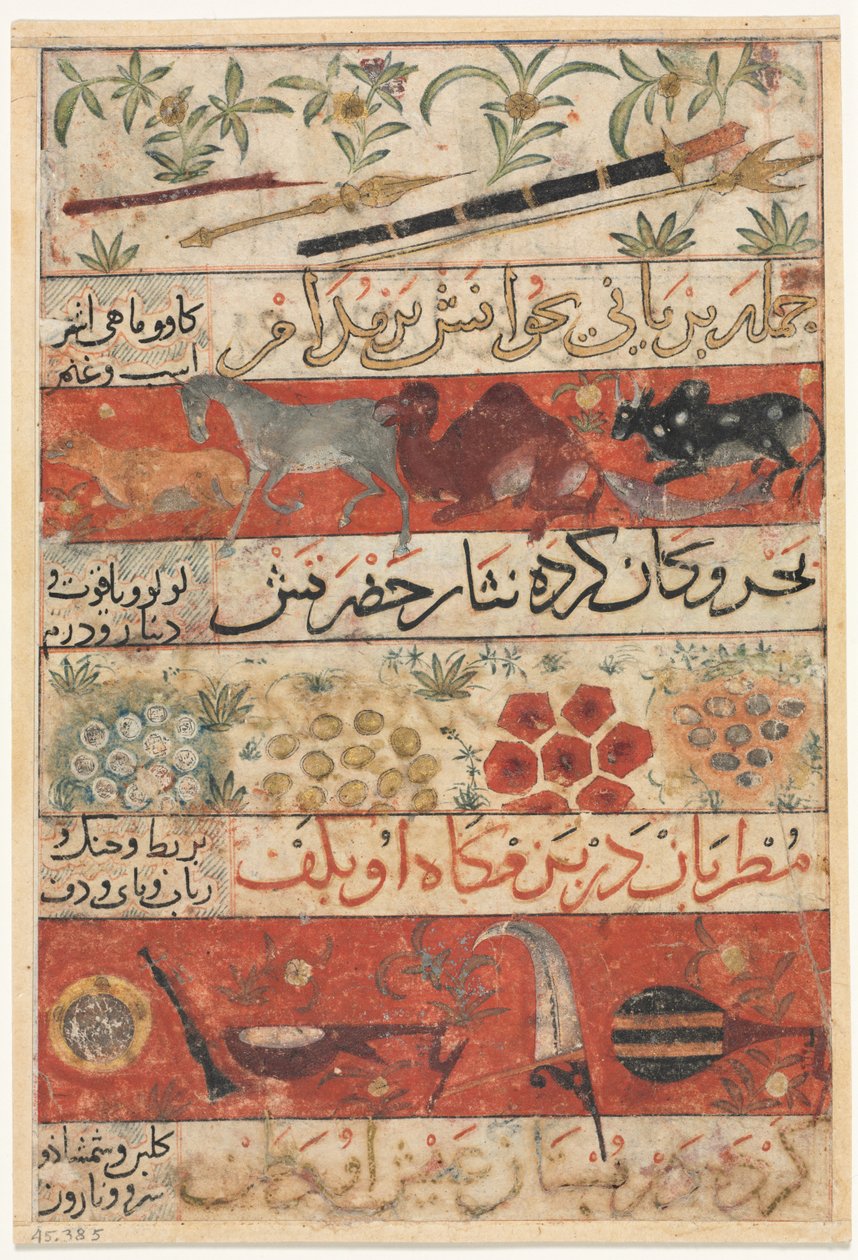 جمله بریانی بخوانش بر مدام
کاو و ماهی اشتر
اسب و غنم
بحر و کان کرده نثار حضرتش
لولو و یاقوت و
دینار و درم
مطربان در بزمکاه او بکف
بربط و چنک و
رباب و نای و دف
کرده در بستان عیش او وطن
کلبن و شمشاد و
سرو و نارون
45.385